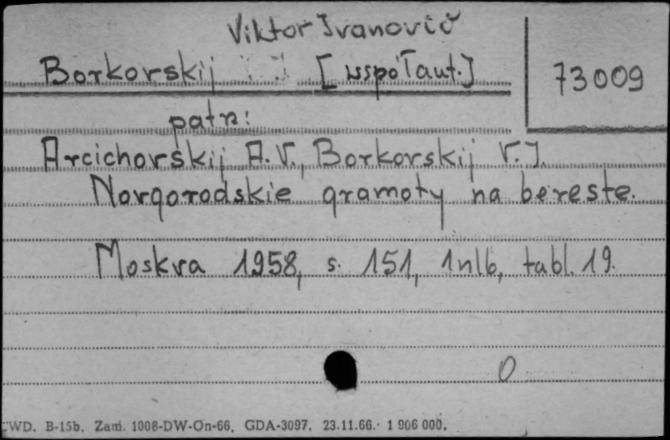 Viktor Ivanovič
Borkovskij [współaut.]
73009
patrz:
Arcichovskij A.V., Borkovskij V.I.
Novgorodskie gramoty na bereste.
Moskva 1958, s. 151, 1nlb, tabl. 19.
0
WD. B-15b. Zam. 1008-DW-On-66. GDA-3097. 23.11.66. 1 906 000.